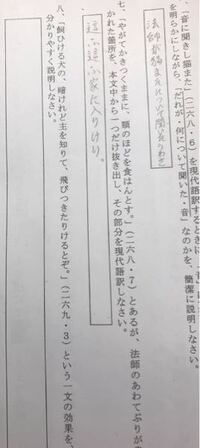 「音に聞きし猫また」(二六八・6)を現代語訳するときに、
を明らかにしながら、「だれが・何について聞いた・音」なのかを、簡潔に説明しなさい。
法師が猫またについて聞いた
七、「やがてかきつくままに、頸のほどを食はんとす。」(二六八・7)とあるが、法師のあわてぶりが
かれた箇所を、本文中から一つだけ抜き出し、その部分を現代語訳しなさい。
這ふ這ふ家に入りけり。
八、「飼ひける犬の、暗けれど主を知りて、飛びつきたりけるとぞ。」(二六九・3)という一文の効果を、
分かりやすく説明しなさい。